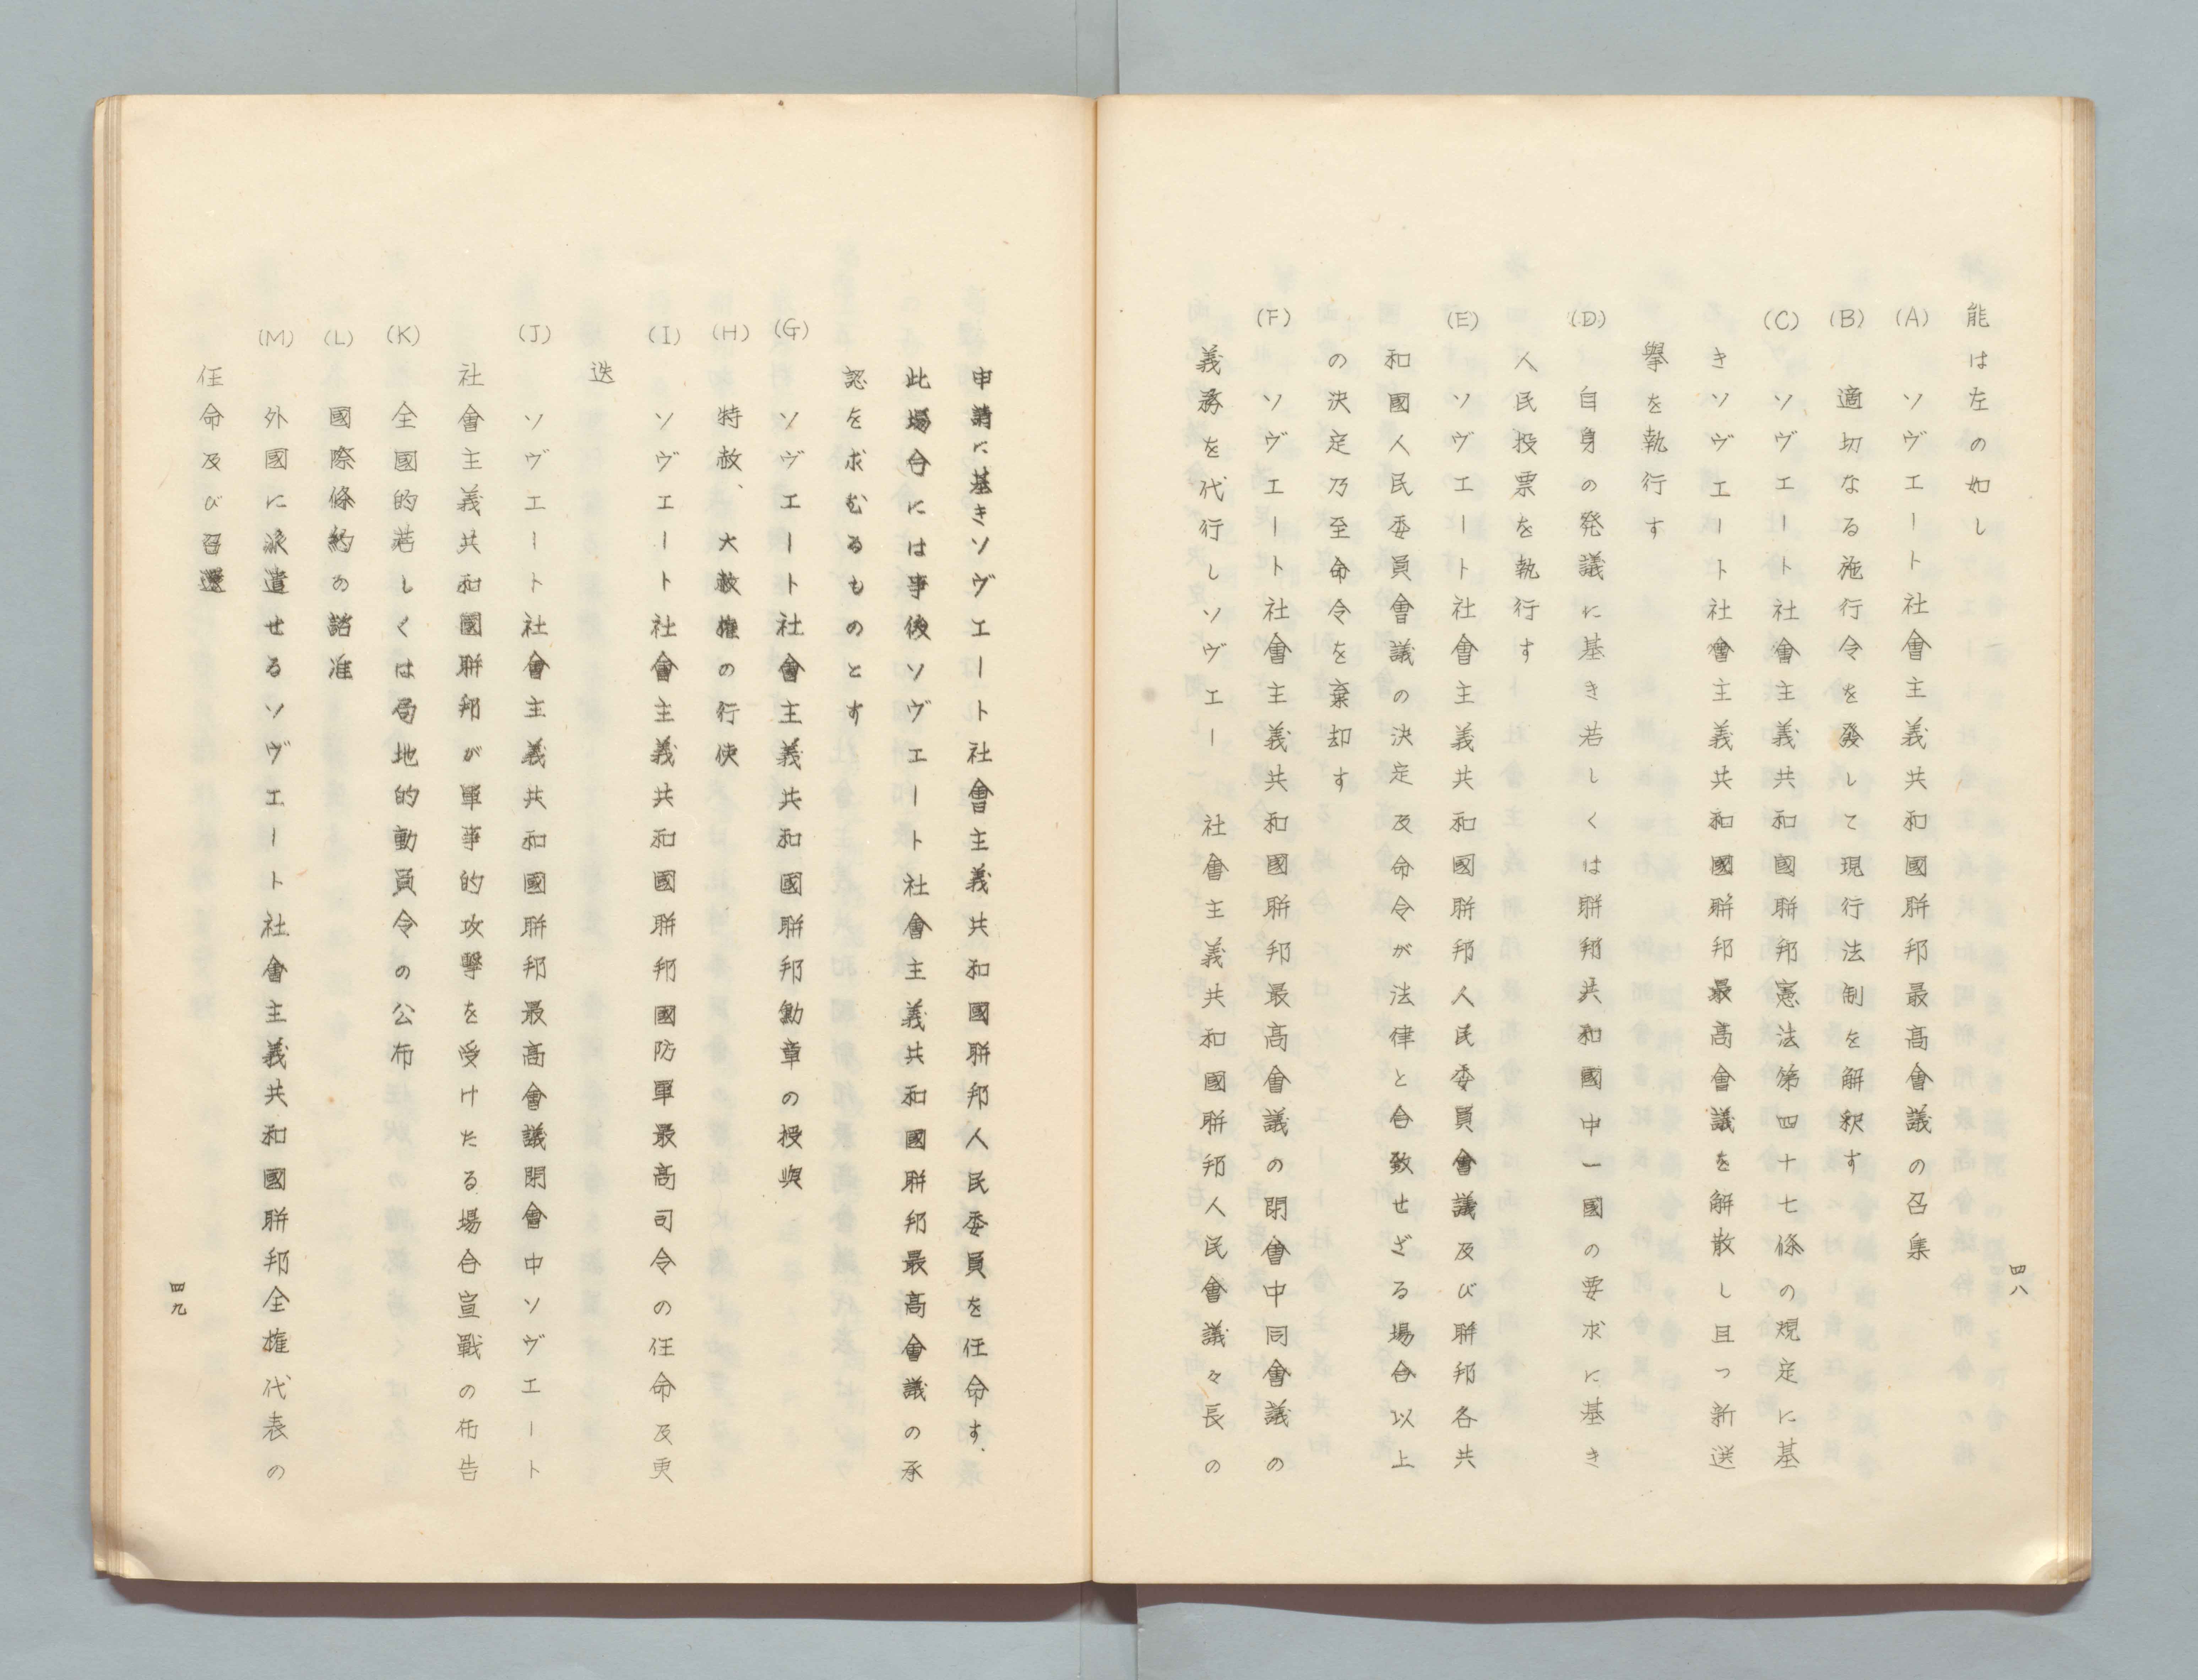 能は左の如し
(A) ソヴエート社會主義共和國聯邦最高會議の召集
(B) 適切なる施行令を發して現行法制を解釈す
(C) ソヴエート社會主義共和國聯邦憲法第四十七條の規定に基
きソヴエート社會主義共和國聯邦最高會議を解散し且つ新選
擧を執行す
(D) 自身の発議に基き若しくは聯邦共和國中一國の要求に基き
人民投票を執行す
(E) ソヴエート社會主義共和國聯邦人民委員會議及び聯邦各共
和國人民委員會議の決定及命令が法律と合致せざる場合以上
の決定乃至命令を棄却す
(F) ソヴエート社會主義共和國聯邦最高會議の閉會中同會議の
義務を代行しソヴエー 社會主義共和國聯邦人民會議々長の
四八
申請に基きソヴエート社會主義共和國聯邦人民委員を任命す、
此場合には事後ソヴエート社會主義共和國聯邦最高會議の承
認を求むるものとす
(G) ソヴエート社會主義共和國聯邦勳章の授與
(H) 特赦、大赦権の行使
(I) ソヴエート社會主義共和國聯邦國防軍最高司令の任命及更
迭
(J) ソヴエート社會主義共和國聯邦最高會議閉會中ソヴエート
社會主義共和國聯邦が軍事的攻擊を受けたる場合宣戰の布告
(K) 全國的若しくは局地的動員令の公布
(L) 國際條約の諮准
(M) 外國に派遣せるソヴエート社會主義共和國聯邦全権代表の
任命及び召還
四九